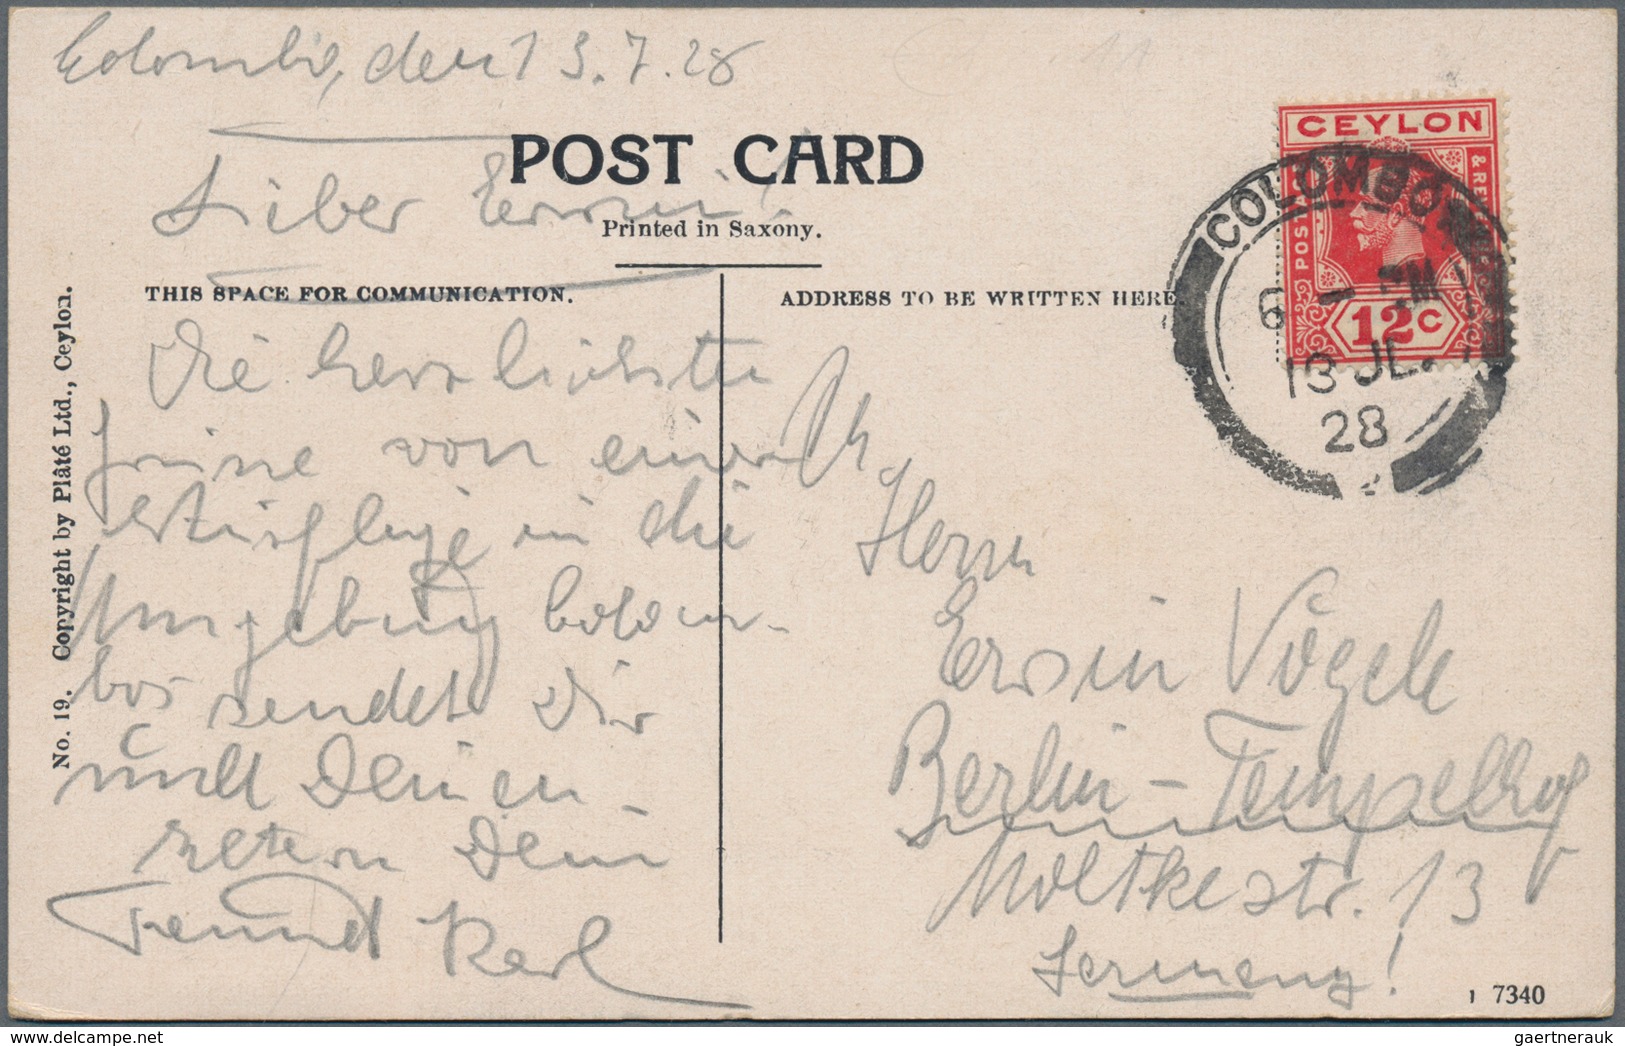 Colombo, den 13.7.28
POST CARD
Lieber Erwin!
Printed in Saxony.
THIS SPACE FOR COMMUNICATION.
Die herzlichsten
Grüsse von einem
Ausfluge in die
Umgebung Colom-
bos sendet Dir
und Deinen
Eltern Dein
Freund Karl
No. 19. Copyright by Plâté Ltd., Ceylon.
ADDRESS TO BE WRITTEN HERE.
CEYLON
POSTAGE
12 C
COLOMBO
6 - PM
13 JL.
28
Herrn
Erwin Vögele
Berlin-Tempelhof
Moltkestr. 13
Germany!
1 7340
gaertnerauk